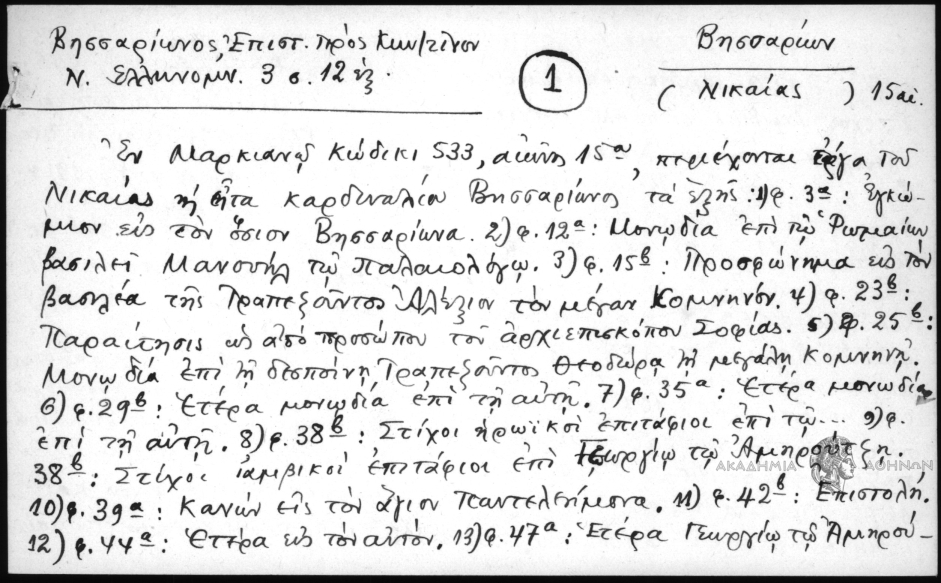 Βησσαρίωνος, Ἐπιστ. πρὸς Κων/τῖνον
Ν. Ἑλληνομν. 3 σ. 12 ἑξ.
1
Βησσαρίων
(Νικαίας) 15 αἰ.
Ἐν Μαρκιανῷ κώδικι 533, αἰῶνος 15ου, περιέχονται ἔργα τοῦ
Νικαίας εἶτα καρδιναλίου Βησσαρίωνος τὰ ἑξῆς: 1) φ. 3α: Ἐγκώ-
μιον εἰς τὸν ὅσιον Βησσαρίωνα. 2) φ. 12α: Μονῳδία ἐπὶ τῷ Ῥωμαίων
βασιλεῖ Μανουὴλ τῷ Παλαιολόγῳ. 3) φ. 15β: Προσφώνημα εἰς τὸν
βασιλέα τῆς Τραπεζοῦντος Ἀλέξιον τὸν μέγαν Κομνηνόν. 4) φ. 23β:
Παραίτησις ὡς ἀπὸ προσώπου τοῦ ἀρχιεπισκόπου Σοφίας. 5) φ. 25β:
Μονῳδία ἐπὶ τῇ δεσποίνῃ Τραπεζοῦντος Θεοδώρᾳ τῇ μεγάλῃ Κομνηνῇ.
6) φ. 29β: Ἑτέρα μονῳδία ἐπὶ τῇ αὐτῇ. 7) φ. 35α: Ἑτέρα μονῳδία
ἐπὶ τῇ αὐτῇ. 8) φ. 38β: Στίχοι ἡρωϊκοὶ ἐπιτάφιοι ἐπὶ τῷ... 9) φ.
38β: Στίχοι ἰαμβικοὶ ἐπιτάφιοι ἐπὶ Γεωργίῳ τῷ Ἀμηρούτζῃ.
10) φ. 39α: Κανὼν εἰς τὸν ἅγιον Παντελεήμονα. 11) φ. 42β: Ἐπιστολή.
12) φ. 44α: Ἑτέρα εἰς τὸν αὐτόν. 13) φ. 47α: Ἑτέρα Γεωργίῳ τῷ Ἀμηρού-
ΑΚΑΔΗΜΙΑ ΑΘΗΝΩΝ